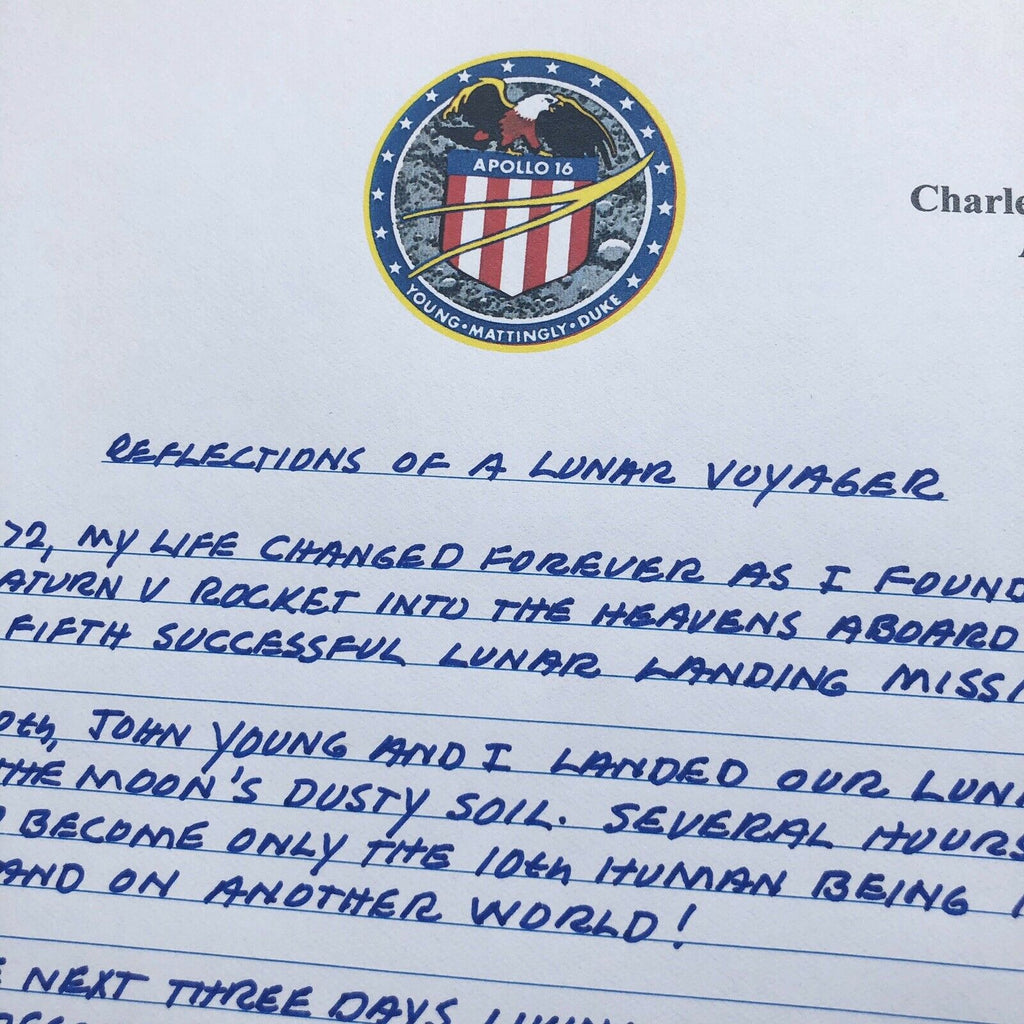 APOLLO 16
YOUNG • MATTINGLY • DUKE
Charle
REFLECTIONS OF A LUNAR VOYAGER
72, MY LIFE CHANGED FOREVER AS I FOUND
ATURN V ROCKET INTO THE HEAVENS ABOARD
FIFTH SUCCESSFUL LUNAR LANDING MISSI
0th, JOHN YOUNG AND I LANDED OUR LUN
THE MOON'S DUSTY SOIL. SEVERAL HOURS
BECOME ONLY THE 10th HUMAN BEING
AND ON ANOTHER WORLD!
NEXT THREE DAYS